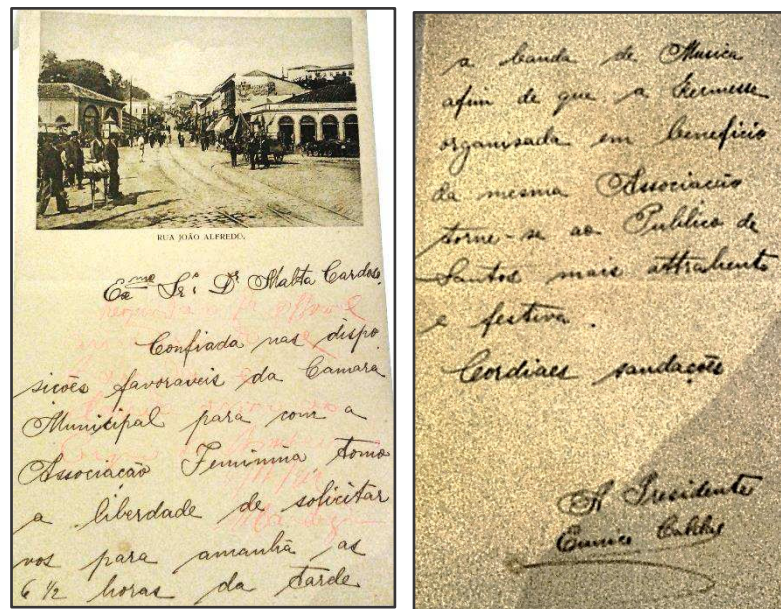 RUA JOÃO ALFREDO.
Ex.mo Sr. Dr Matta Cardoso
Confiada nas dispo
sicões favoraveis da Camara
Municipal para com a
Associacão Feminina tomo
a liberdade de solicitar
vos para amanhã as
6 1/2 horas da tarde
a banda de Musica
afim de que a Kermesse
organisada em beneficio
da mesma Associacão
torne-se ao Publico de
Santos mais attrahente
e festiva.
Cordiaes saudacões
A Presidente
Eunice